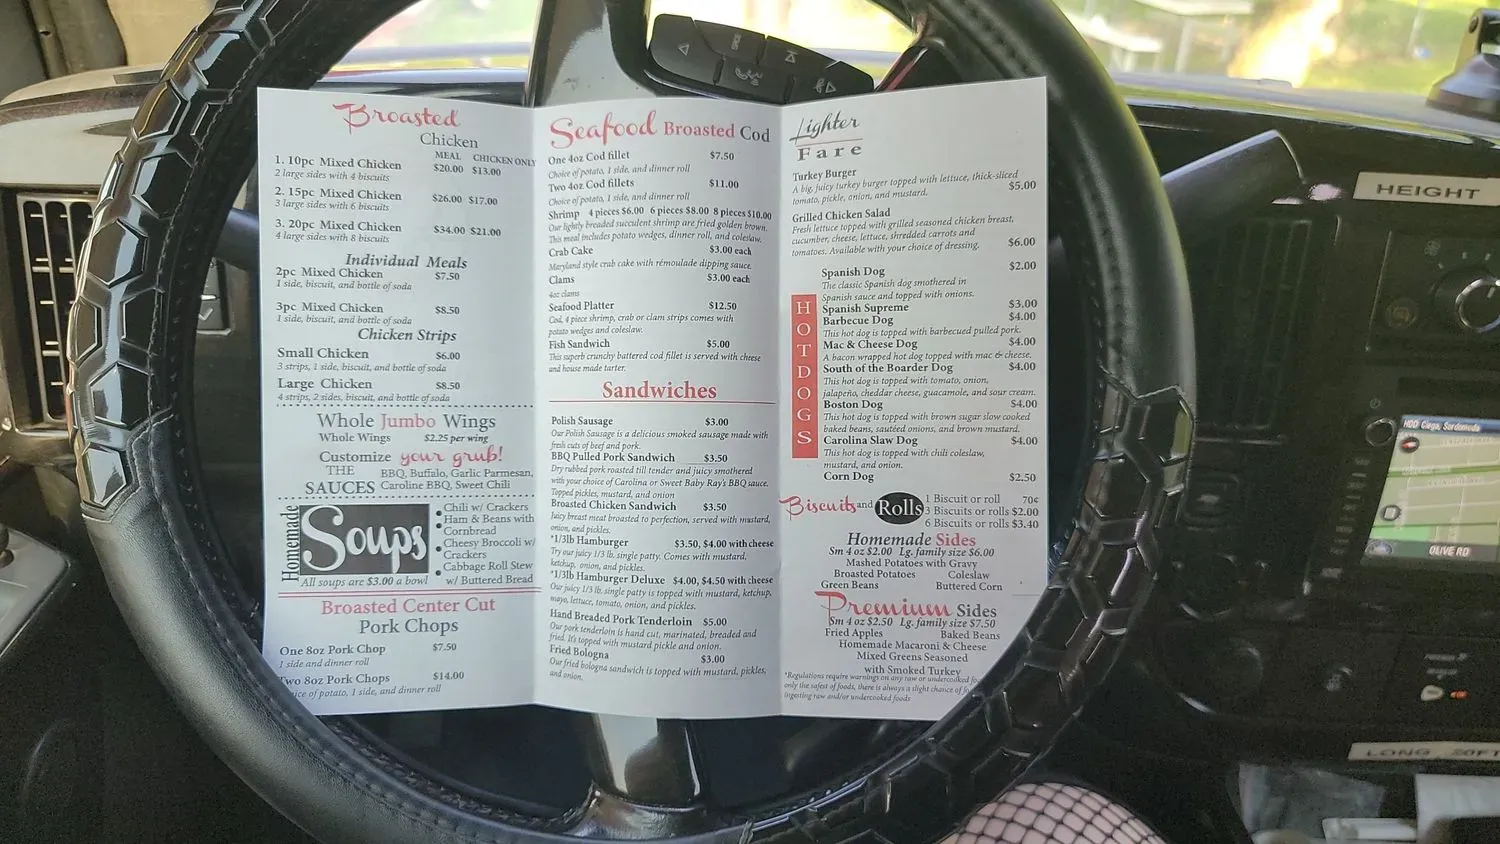 Broasted
Chicken
MEAL CHICKEN ONLY
1. 10pc Mixed Chicken $20.00 $13.00
2 large sides with 4 biscuits
2. 15pc Mixed Chicken $26.00 $17.00
3 large sides with 6 biscuits
3. 20pc Mixed Chicken $34.00 $21.00
4 large sides with 8 biscuits
Individual Meals
2pc Mixed Chicken $7.50
1 side, biscuit, and bottle of soda
3pc Mixed Chicken $8.50
1 side, biscuit, and bottle of soda
Chicken Strips
Small Chicken $6.00
3 strips, 1 side, biscuit, and bottle of soda
Large Chicken $8.50
4 strips, 2 sides, biscuit, and bottle of soda
Whole Jumbo Wings
Whole Wings $2.25 per wing
Customize your grub!
THE SAUCES
BBQ, Buffalo, Garlic Parmesan,
Caroline BBQ, Sweet Chili
Homemade
Soups
• Chili w/ Crackers
• Ham & Beans with
Cornbread
• Cheesy Broccoli w/
Crackers
• Cabbage Roll Stew
w/ Buttered Bread
All soups are $3.00 a bowl
Broasted Center Cut
Pork Chops
One 8oz Pork Chop $7.50
1 side and dinner roll
Two 8oz Pork Chops $14.00
of potato, 1 side, and dinner roll
Seafood Broasted Cod
One 4oz Cod fillet $7.50
Choice of potato, 1 side, and dinner roll
Two 4oz Cod fillets $11.00
Choice of potato, 1 side, and dinner roll
Shrimp 4 pieces $6.00 6 pieces $8.00 8 pieces $10.00
Our lightly breaded succulent shrimp are fried golden brown.
This meal includes potato wedges, dinner roll, and coleslaw.
Crab Cake $3.00 each
Maryland style crab cake with rémoulade dipping sauce.
Clams $3.00 each
4oz clams
Seafood Platter $12.50
Cod, 4 piece shrimp, crab or clam strips comes with
potato wedges and coleslaw.
Fish Sandwich $5.00
This superb crunchy battered cod fillet is served with cheese
and house made tarter.
Sandwiches
Polish Sausage $3.00
Our Polish Sausage is a delicious smoked sausage made with
fresh cuts of beef and pork.
BBQ Pulled Pork Sandwich $3.50
Dry rubbed pork roasted till tender and juicy smothered
with your choice of Carolina or Sweet Baby Ray's BBQ sauce.
Topped pickles, mustard, and onion
Broasted Chicken Sandwich $3.50
Juicy breast meat broasted to perfection, served with mustard,
onion, and pickles.
*1/3lb Hamburger $3.50, $4.00 with cheese
Try our juicy 1/3 lb. single patty. Comes with mustard,
ketchup, onion, and pickles.
*1/3lb Hamburger Deluxe $4.00, $4.50 with cheese
Our juicy 1/3 lb. single patty is topped with mustard, ketchup,
mayo, lettuce, tomato, onion, and pickles.
Hand Breaded Pork Tenderloin $5.00
Our pork tenderloin is hand cut, marinated, breaded and
fried. It's topped with mustard pickle and onion.
Fried Bologna $3.00
Our fried bologna sandwich is topped with mustard, pickles,
and onion.
Lighter
Fare
Turkey Burger
A big, juicy turkey burger topped with lettuce, thick-sliced
tomato, pickle, onion, and mustard. $5.00
Grilled Chicken Salad
Fresh lettuce topped with grilled seasoned chicken breast,
cucumber, cheese, lettuce, shredded carrots and
tomatoes. Available with your choice of dressing. $6.00
HOTDOGS
Spanish Dog $2.00
The classic Spanish dog smothered in
Spanish sauce and topped with onions.
Spanish Supreme $3.00
Barbecue Dog $4.00
This hot dog is topped with barbecued pulled pork.
Mac & Cheese Dog $4.00
A bacon wrapped hot dog topped with mac & cheese.
South of the Boarder Dog $4.00
This hot dog is topped with tomato, onion,
jalapeño, cheddar cheese, guacamole, and sour cream.
Boston Dog $4.00
This hot dog is topped with brown sugar slow cooked
baked beans, sautéed onions, and brown mustard.
Carolina Slaw Dog $4.00
This hot dog is topped with chili coleslaw,
mustard, and onion.
Corn Dog $2.50
Biscuits and Rolls
1 Biscuit or roll 70¢
3 Biscuits or rolls $2.00
6 Biscuits or rolls $3.40
Homemade Sides
Sm 4 oz $2.00 Lg. family size $6.00
Mashed Potatoes with Gravy
Broasted Potatoes Coleslaw
Green Beans Buttered Corn
Premium Sides
Sm 4 oz $2.50 Lg. family size $7.50
Fried Apples Baked Beans
Homemade Macaroni & Cheese
Mixed Greens Seasoned
with Smoked Turkey
*Regulations require warnings on any raw or undercooked
only the safest of foods, there is always a slight chance of
ingesting raw and/or undercooked foods
HEIGHT
OLIVE RD
LONG